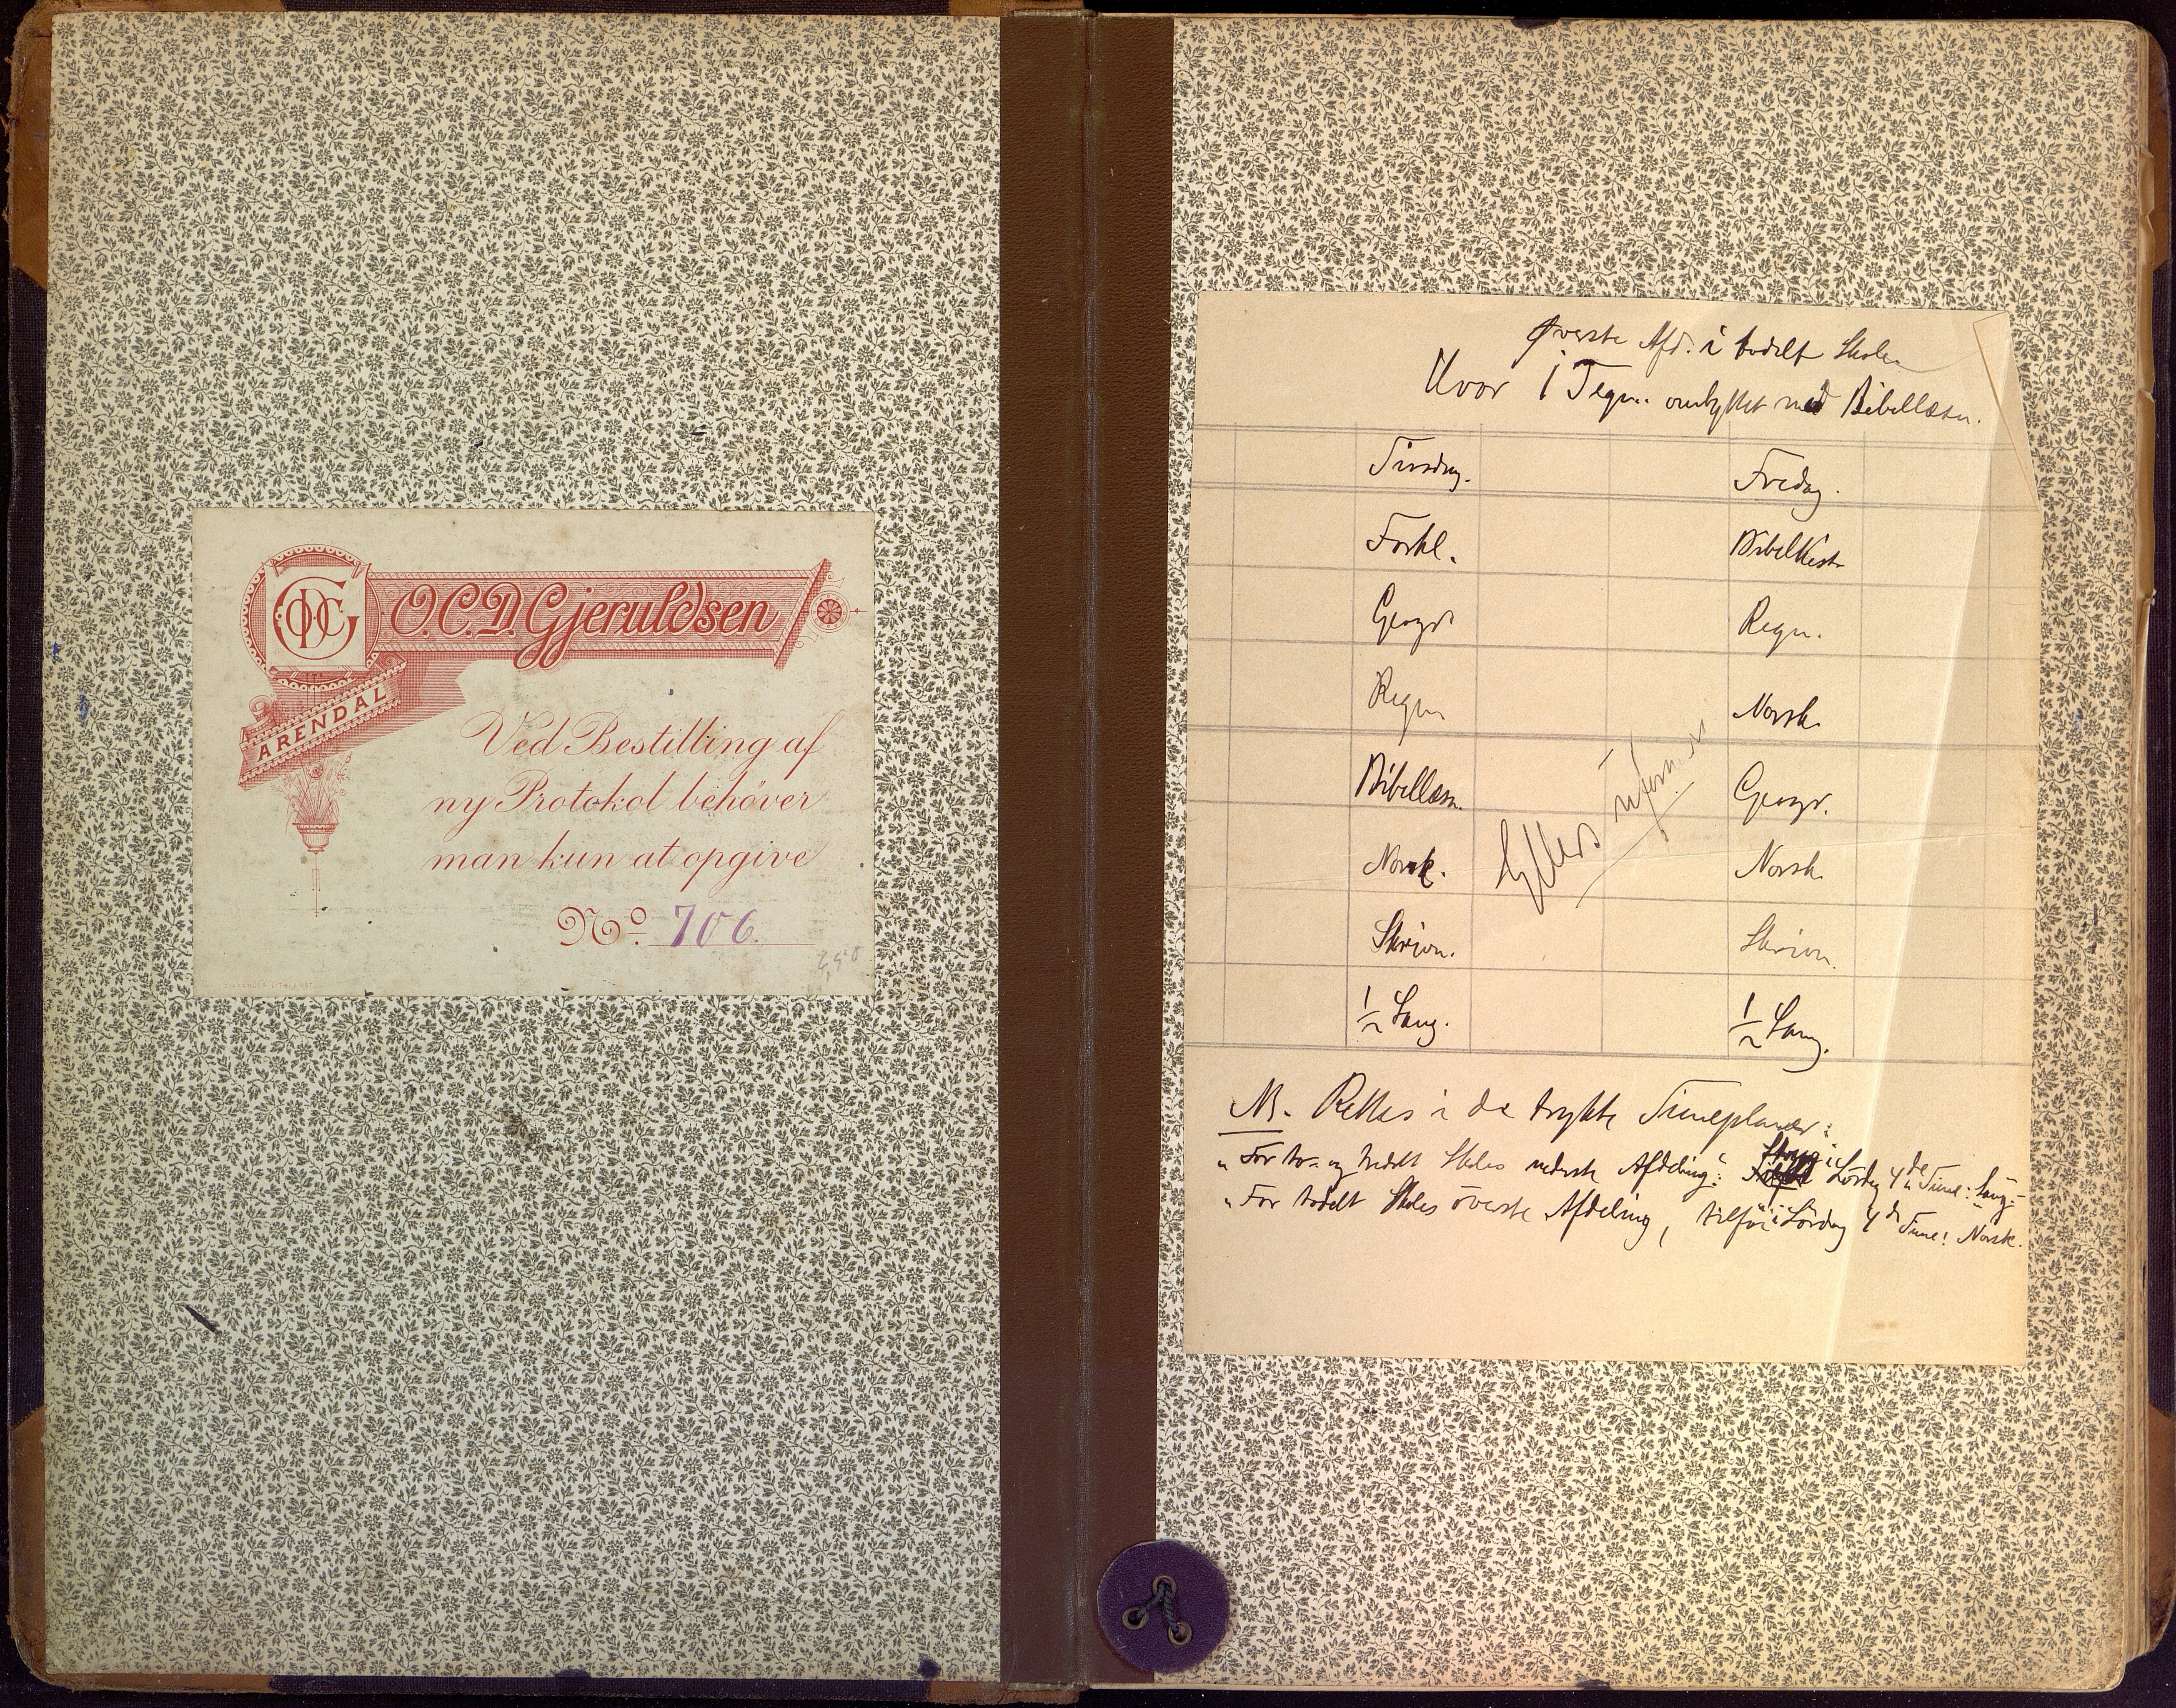 O.C.D. Gjeruldsen
ARENDAL
Ved Bestilling af
ny Protokol behøver
man kun at opgive
No. 706.
Øverste Afd. i todelt Skole
Hvor 1 Tegn. ombyttet med Bibellæsn.
Tirsdag. Fredag.
Forkl. Bibelhist.
Geogr. Regn.
Regn. Norsk.
Bibellæsn. Geogr.
Norsk. Norsk.
Skrivn. Skrivn.
1/2 Sang. 1/2 Sang.
Ellers uforandr.
NB. Rettes i de trykte Timeplaner:
" For to- og tredelt Skoles nederste Afdeling: Stryg i Lördag 4de Time: Sang.
" For todelt Skoles överste Afdeling, tilföi i Lördag 4de Time: Norsk.